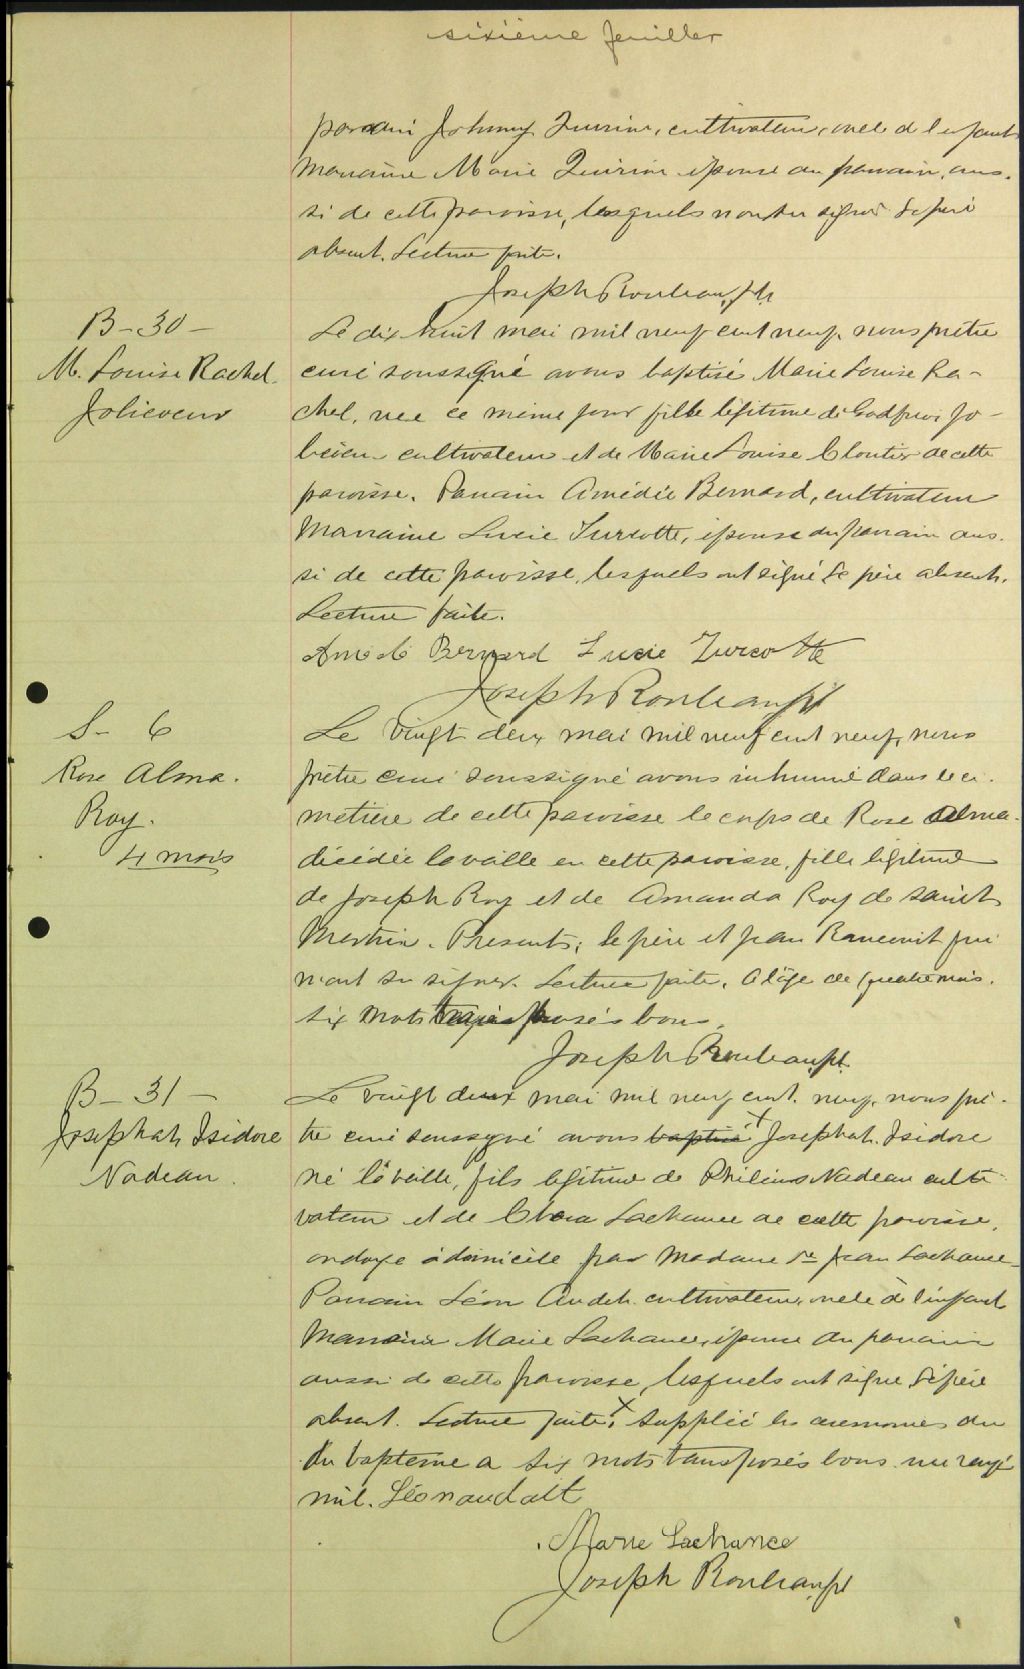 sixième feuillet
parrain Johnny Quirion, cultivateur, oncle de l'enfant
marraine Marie Quirion épouse du parrain, aus-
si de cette paroisse, lesquels n'ont su signer Le père
absent. Lecture faite.
Joseph Rouleau, ptr
B-30-
M. Louise Rachel
Jolicoeur
Le dix huit mai mil neuf cent neuf, nous prêtre
curé soussigné avons baptisé Marie Louise Ra-
chel, née ce même jour fille légitime de Godfroi Jo-
licoeur cultivateur et de Marie Louise Cloutier de cette
paroisse. Parrain Amédée Bernard, cultivateur
Marraine Lucie Turcotte, épouse du parrain aus-
si de cette paroisse, lesquels ont signé Le père absent.
Lecture faite.
Amédé Bernard Lucie Turcotte
Joseph Rouleau ptr
S- 6
Rose Alma.
Roy.
4 mois
Le vingt deux mai mil neuf cent neuf, nous
prêtre curé soussigné avons inhumé dans le ci-
metière de cette paroisse le corps de Rose Alma
décédée la veille en cette paroisse, fille légitime
de Joseph Roy et de Amanda Roy de Saint
Martin. Présents; le père et Jean Rancourt qui
n'ont su signer. Lecture faite. A l'âge de quatre mois.
six mots transposés bons.
Joseph Rouleau, pt
B-31-
Josephat Isidore
Nadeau.
Le vingt deux mai mil neuf cent. neuf, nous prê-
tre curé soussigné avons baptisé x Josephat Isidore
né la veille, fils légitime de Philéas Nadeau culti-
vateur et de Clara Lachance de cette paroisse,
ondoyé à domicile par Madame Jean Lachance
Parrain Léon Audet cultivateur, oncle de l'enfant
Marraine Marie Lachance, épouse du parrain
aussi de cette paroisse, lesquels ont signé. Le père
absent. Lecture faite. x suppléé les ceremonies du
du bapteme a six mots transposés bons un rayé
nul. Léon audett
Marie Lachance
Joseph Rouleau, pt